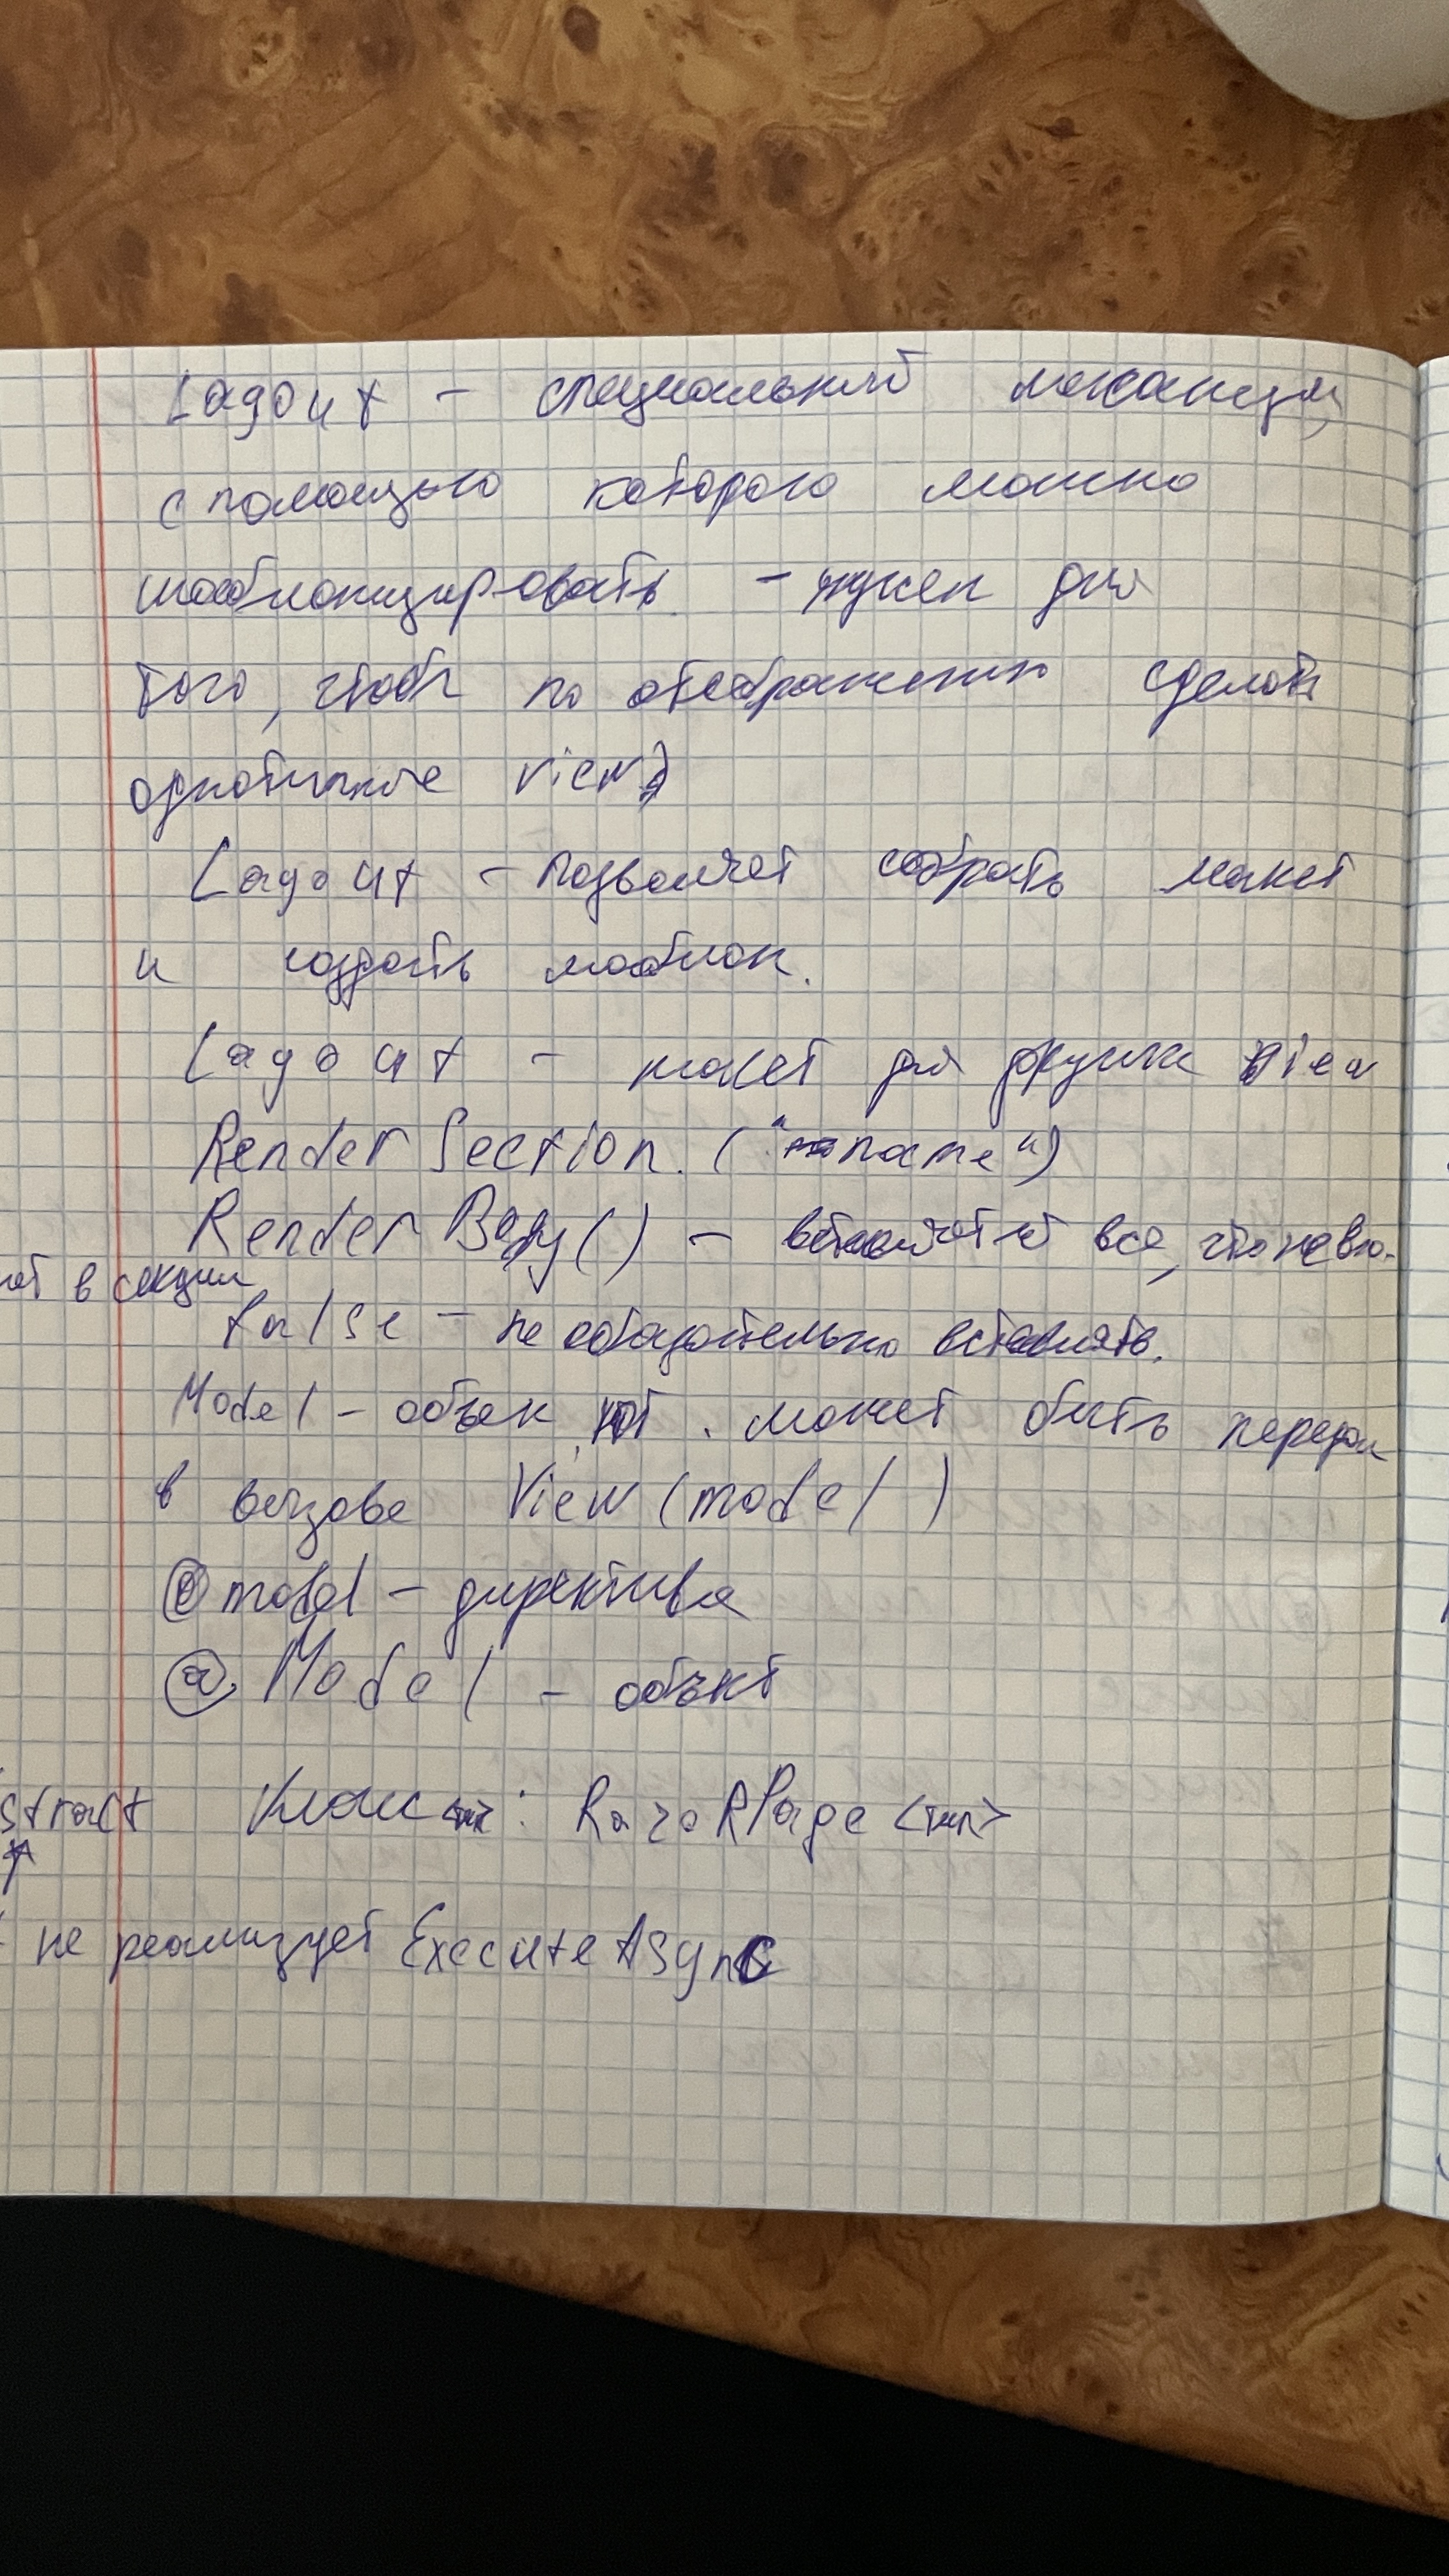 Layout - специальный механизм,
с помощью которого можно
шаблонизировать - нужен для
того, чтобы по отображению сделать
однотипные view
Layout - позволяет собрать макет
и создать шаблон.
Layout - макет для других view
Render Section. ("name")
Render Body() - вставляет всё, что не вхо-
ят в секции
false - не обязательно вставлять.
Model - объек кот. может быть передан
в вызове View (model)
@model - директива
@Model - объкт
stract Класс : RazoRPage <тип>
не реализует ExecuteAsync